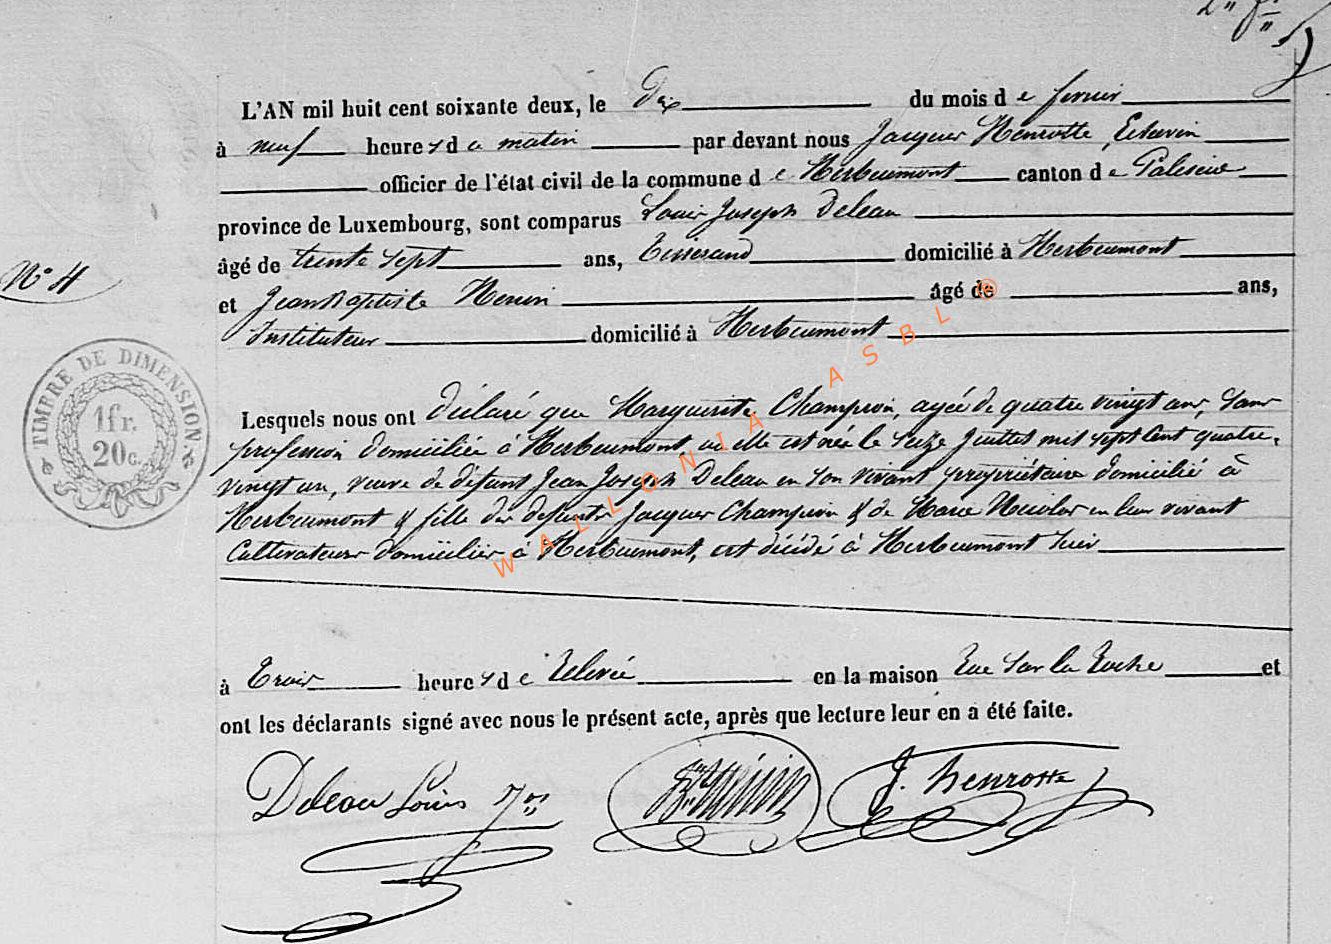 L'AN mil huit cent soixante deux, le Dix du mois d e fevrier
à neuf heure s d u matin par devant nous Jacques Henrotte, Echevin
officier de l'état civil de la commune d e Herbeumont canton d e Paliseul
province de Luxembourg, sont comparus Louis Joseph Deleau
âgé de trente sept ans, Tisserand domicilié à Herbeumont
N° 4
et Jean Baptiste Henin âgé de ans,
Instituteur domicilié à Herbeumont
TIMBRE DE DIMENSION
1 fr.
20 c.
Lesquels nous ont déclaré que Marguerite Champion, agée de quatre vingt ans, sans
profession domiciliée à Herbeumont, où elle est née le seize Juillet mil sept cent quatre-
vingt un, veuve de défunt Jean Joseph Deleau en son vivant propriétaire domicilié à
Herbeumont & fille des defunts Jacques Champion & de Marie Nicolas en leur vivant
Cultivateurs domiciliés à Herbeumont, est décédé à Herbeumont hier
à Trois heure s d e relevée en la maison Rue Sur la Roche et
ont les déclarants signé avec nous le présent acte, après que lecture leur en a été faite.
Deleau Louis Jph J. henrotte
WALLONIA ASBL ®